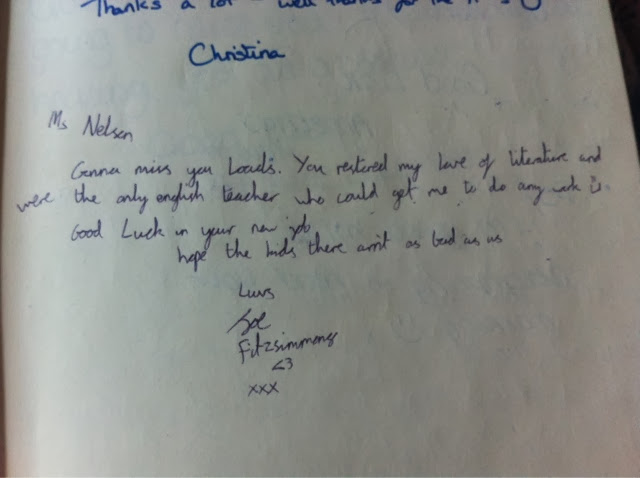 Thanks a lot
Christina
Ms Nelson
Gonna miss you Loads. You restored my love of literature and
were the only english teacher who could get me to do any work
Good Luck in your new job
hope the kids there arn't as bad as us
Luvs
Joe
Fitzsimmons
<3
xxx